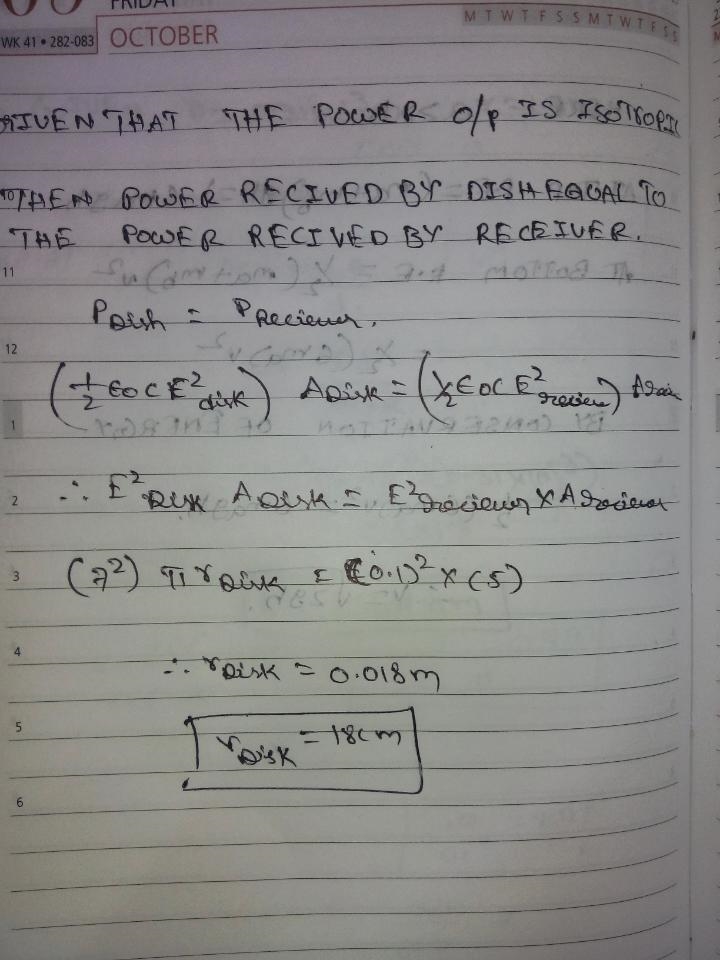 FRIDAY
M T W T F S S M T W T F S S
WK 41 • 282-083 OCTOBER
GIVEN THAT THE POWER O/P IS ISOTROPIC
THEN POWER RECIVED BY DISH EQUAL TO
THE POWER RECIVED BY RECEIVER.
11
P Dish = P Reciever.
12
(1/2 ϵ0 C E² disk) A Disk = (1/2 ϵ0 C E² reciever)
1
2
∴ E² Disk A Disk = E² reciever × A reciever
3
(7²) π r Disk = (0.1)² × (5)
4
∴ r Disk = 0.018m
5
r Disk = 18cm
6